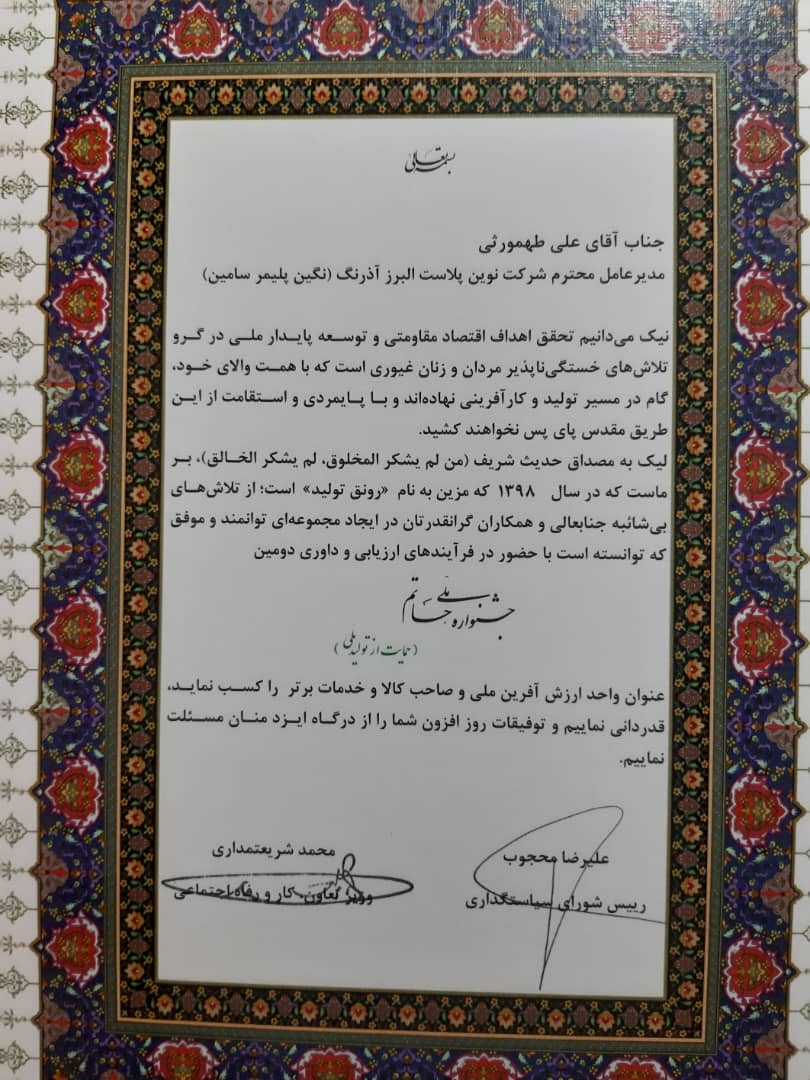 بسمه تعالی
جناب آقای علی طهمورثی
مدیرعامل محترم شرکت نوین پلاست البرز آذرنگ (نگین پلیمر سامین)
نیک می‌دانیم تحقق اهداف اقتصاد مقاومتی و توسعه پایدار ملی در گرو
تلاش‌های خستگی‌ناپذیر مردان و زنان غیوری است که با همت والای خود،
گام در مسیر تولید و کارآفرینی نهاده‌اند و با پایمردی و استقامت از این
طریق مقدس پای پس نخواهند کشید.
لیک به مصداق حدیث شریف (من لم یشکر المخلوق، لم یشکر الخالق)، بر
ماست که در سال ۱۳۹۸ که مزین به نام «رونق تولید» است؛ از تلاش‌های
بی‌شائبه جنابعالی و همکاران گرانقدرتان در ایجاد مجموعه‌ای توانمند و موفق
که توانسته است با حضور در فرآیندهای ارزیابی و داوری دومین
جشنواره ملی حاتم
(حمایت از تولید ملی)
عنوان واحد ارزش آفرین ملی و صاحب کالا و خدمات برتر را کسب نماید،
قدردانی نماییم و توفیقات روز افزون شما را از درگاه ایزد منان مسئلت
نماییم.
علیرضا محجوب
رییس شورای سیاستگذاری
محمد شریعتمداری
وزیر تعاون، کار و رفاه اجتماعی